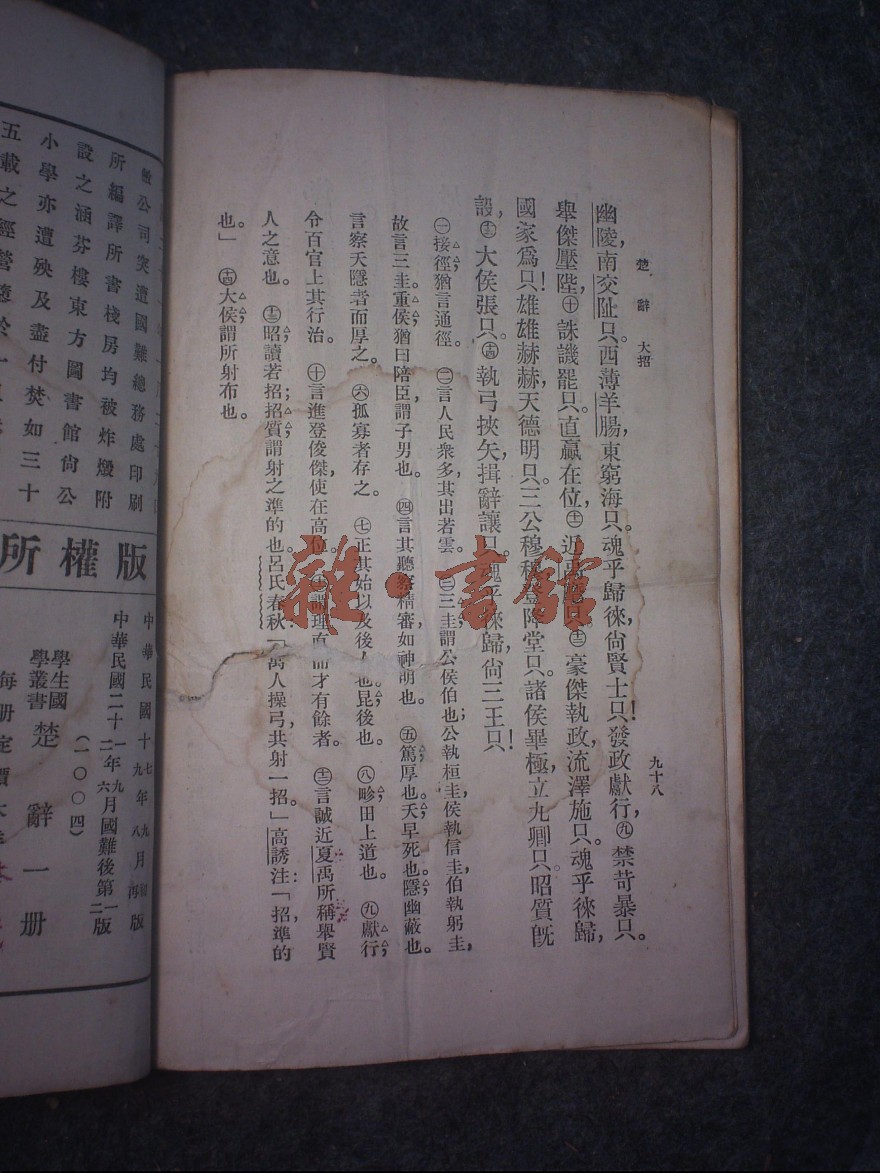 楚辭 大招
九十八
幽陵,南交阯只。西薄羊腸,東窮海只。魂乎歸徠,尙賢士只!發政獻行,㊈禁苛暴只。
舉傑壓陛,㊉誅譏罷只。直贏在位,(十一)近禹只。(十二)豪傑執政,流澤施只。魂乎徠歸,
國家爲只!雄雄赫赫,天德明只。三公穆穆,登降堂只。諸侯畢極,立九卿只。昭質旣
設,(十三)大侯張只。(十四)執弓挾矢,揖辭讓只。魂乎徠歸,尙三王只!
㊀接徑;猶言通徑。㊁言人民衆多,其出若雲。㊂三圭謂公侯伯也;公執桓圭,侯執信圭,伯執躬圭,
故言三圭。重侯猶曰陪臣,謂子男也。㊃言其聽察精審如神明也。㊄篤厚也。夭早死也。隱幽蔽也。
言察夭隱者而厚之。㊅孤寡者存之。㊆正其始以及後人也昆後也。㊇畛田上道也。㊈獻行;
令百官上其行治。㊉言進登俊傑,使在高位。謂理直而才有餘者。(十二)言誠近夏禹所稱舉賢
人之意也。(十三)昭讀若招;招質;謂射之準的也。呂氏春秋「萬人操弓,共射一招。」高誘注:「招準的
也。」(十四)大侯;謂所射布也。
雜·書館
公司突遭國難總務處印刷
所編譯所書棧房均被炸燬附
設之涵芬樓東方圖書館尙公
小學亦遭殃及盡付焚如三十
五載之經營
版權所
中華民國十七年九月初版
中華民國十九年八月再版
中華民國二十一年九月國難後第一版
二年六月二版
(一〇〇四)
學生國學叢書 楚辭一册
每册定價